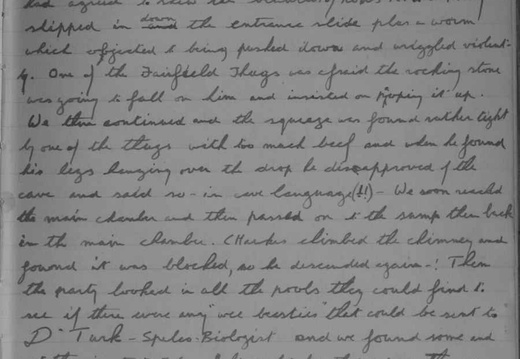 had agreed to
slipped in down and the entrance slide plus a worm
which objected to being pushed down and wriggled violent-
ly. One of the Fairfield Thugs was afraid the rocking stone
was going to fall on him and insisted on proping it up.
We then continued and the squeeze was found rather tight
by one of the thugs with too much beef and when he found
his legs hanging over the drop he disapproved of the
cave and said so - in cave language (!!) - We soon reached
the main chamber and then passed on to the sump then back
in the main chamber. C Hawkes climbed the chimney and
found it was blocked, so he descended again -! Then
the party looked in all the pools they could find to
see if there were any "wee beasties" that could be sent to
Dr Turk - Speleo-Biologist and we found some and